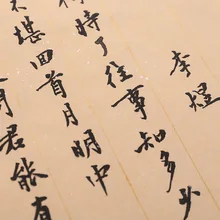 李煜
時了往事知多少
堪回首月明中
君能有